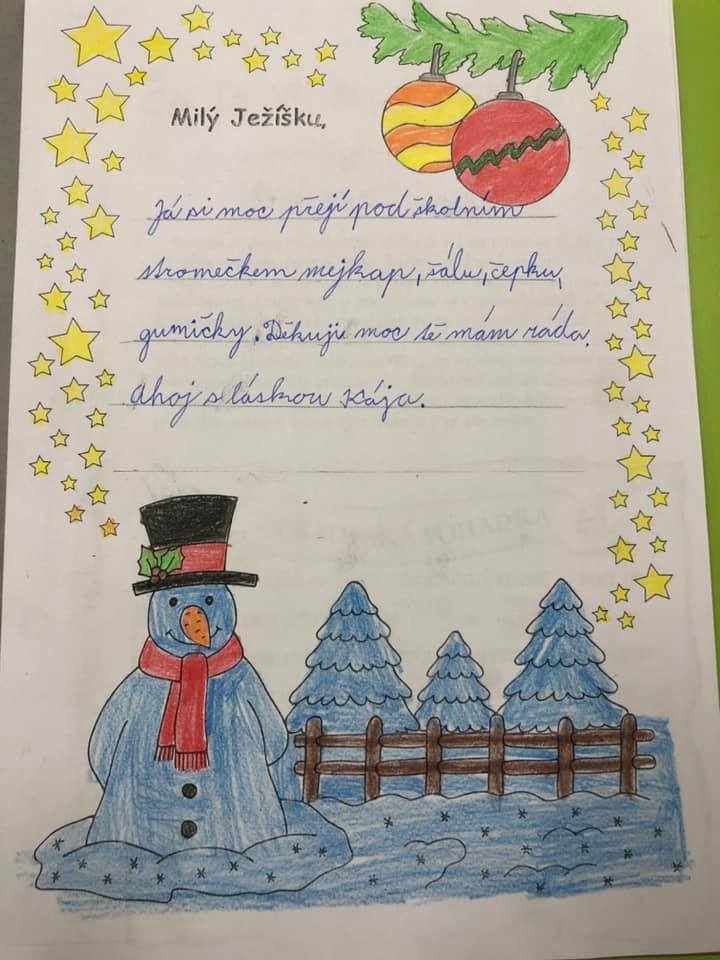 Milý Ježíšku,
Já si moc přejí pod školním
stromečkem mejkap, šálu, čepku,
gumičky. Děkuju moc tě mám ráda.
Ahoj s láskou Kája.